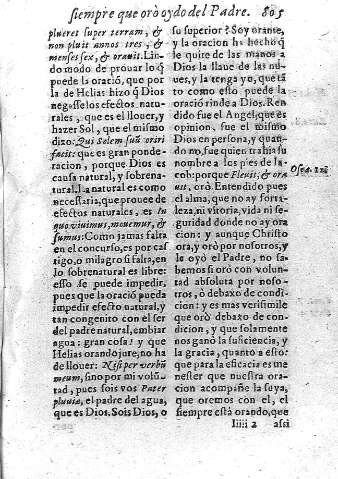 siempre que orò oydo del Padre. 805
plueret super terram, &
non pluit annos tres, &
menses sex, & orauit. Lin-
do modo de prouar lo q̃
puede la oració, que por
la de Helias hizo q̃ Dios
negesse los efectos natu-
rales, que es el llouer, y
hazer Sol, que el mismo
dixo: Qui Solem suũ oriri
facit: que es gran ponde-
racion, porque Dios es
causa natural, y sobrena-
tural. La natural es como
necessaria, que prouee de
efectos naturales, es In
quo viuimus, mouemur, &
sumus: Como jamas falta
en el concurso, es por cas-
tigo, o milagro si falta, en
lo sobrenatural es libre:
esso se puede impedir,
pues que la oració pueda
impedir efecto natural, y
tan congenito con el ser
del padre natural, embiar
agua: gran cosa! y que
Helias orando jure, no ha
de llouer: Nisi per verbũ
meum, sino por mi volũ-
tad, pues sois vos Pater
pluuiæ, el padre del agua,
que es Dios. Sois Dios, o
su superior? Soy orante,
y la oracion ha hecho q̃
le quite de las manos a
Dios la llaue de las nu-
ues, y la tenga yo, que tã-
to como esto puede la
oració rinde a Dios. Ren-
dido fue el Angel, que es
opinion, fue el mismo
Dios en persona, y quan-
do no, fue quien trahia su
nombre a los pies de Ia-
cob: porque Fleuit, & ora
uit, orò. Entendido pues
el alma, que no ay forta-
leza, ni vitoria, vida ni se-
guridad donde no ay ora
cion: y aunque Christo
ora, y orò por nosotros, y
le oyò el Padre, no sa-
bemos si orò con volun-
tad absoluta por noso-
tros, o debaxo de condi-
cion: y es mas verisimile
que orò debaxo de con-
dicion, y que solamente
nos ganò la suficiencia, y
la gracia, quanto a esto:
que para la eficacia es me
nester que nuestra ora-
cion acompañe la suya,
que oremos con el, el
siempre està orando, que
Iiiii 2 assi